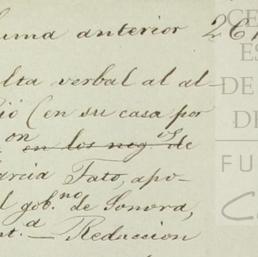 uma anterior 261
ulta verbal al al-
ió (en su casa por
on en los neg.s de
arcia Tato, apo-
l gob.no de Sonora,
nt.a — Redaccion
CE
ES
DE
DE
FU